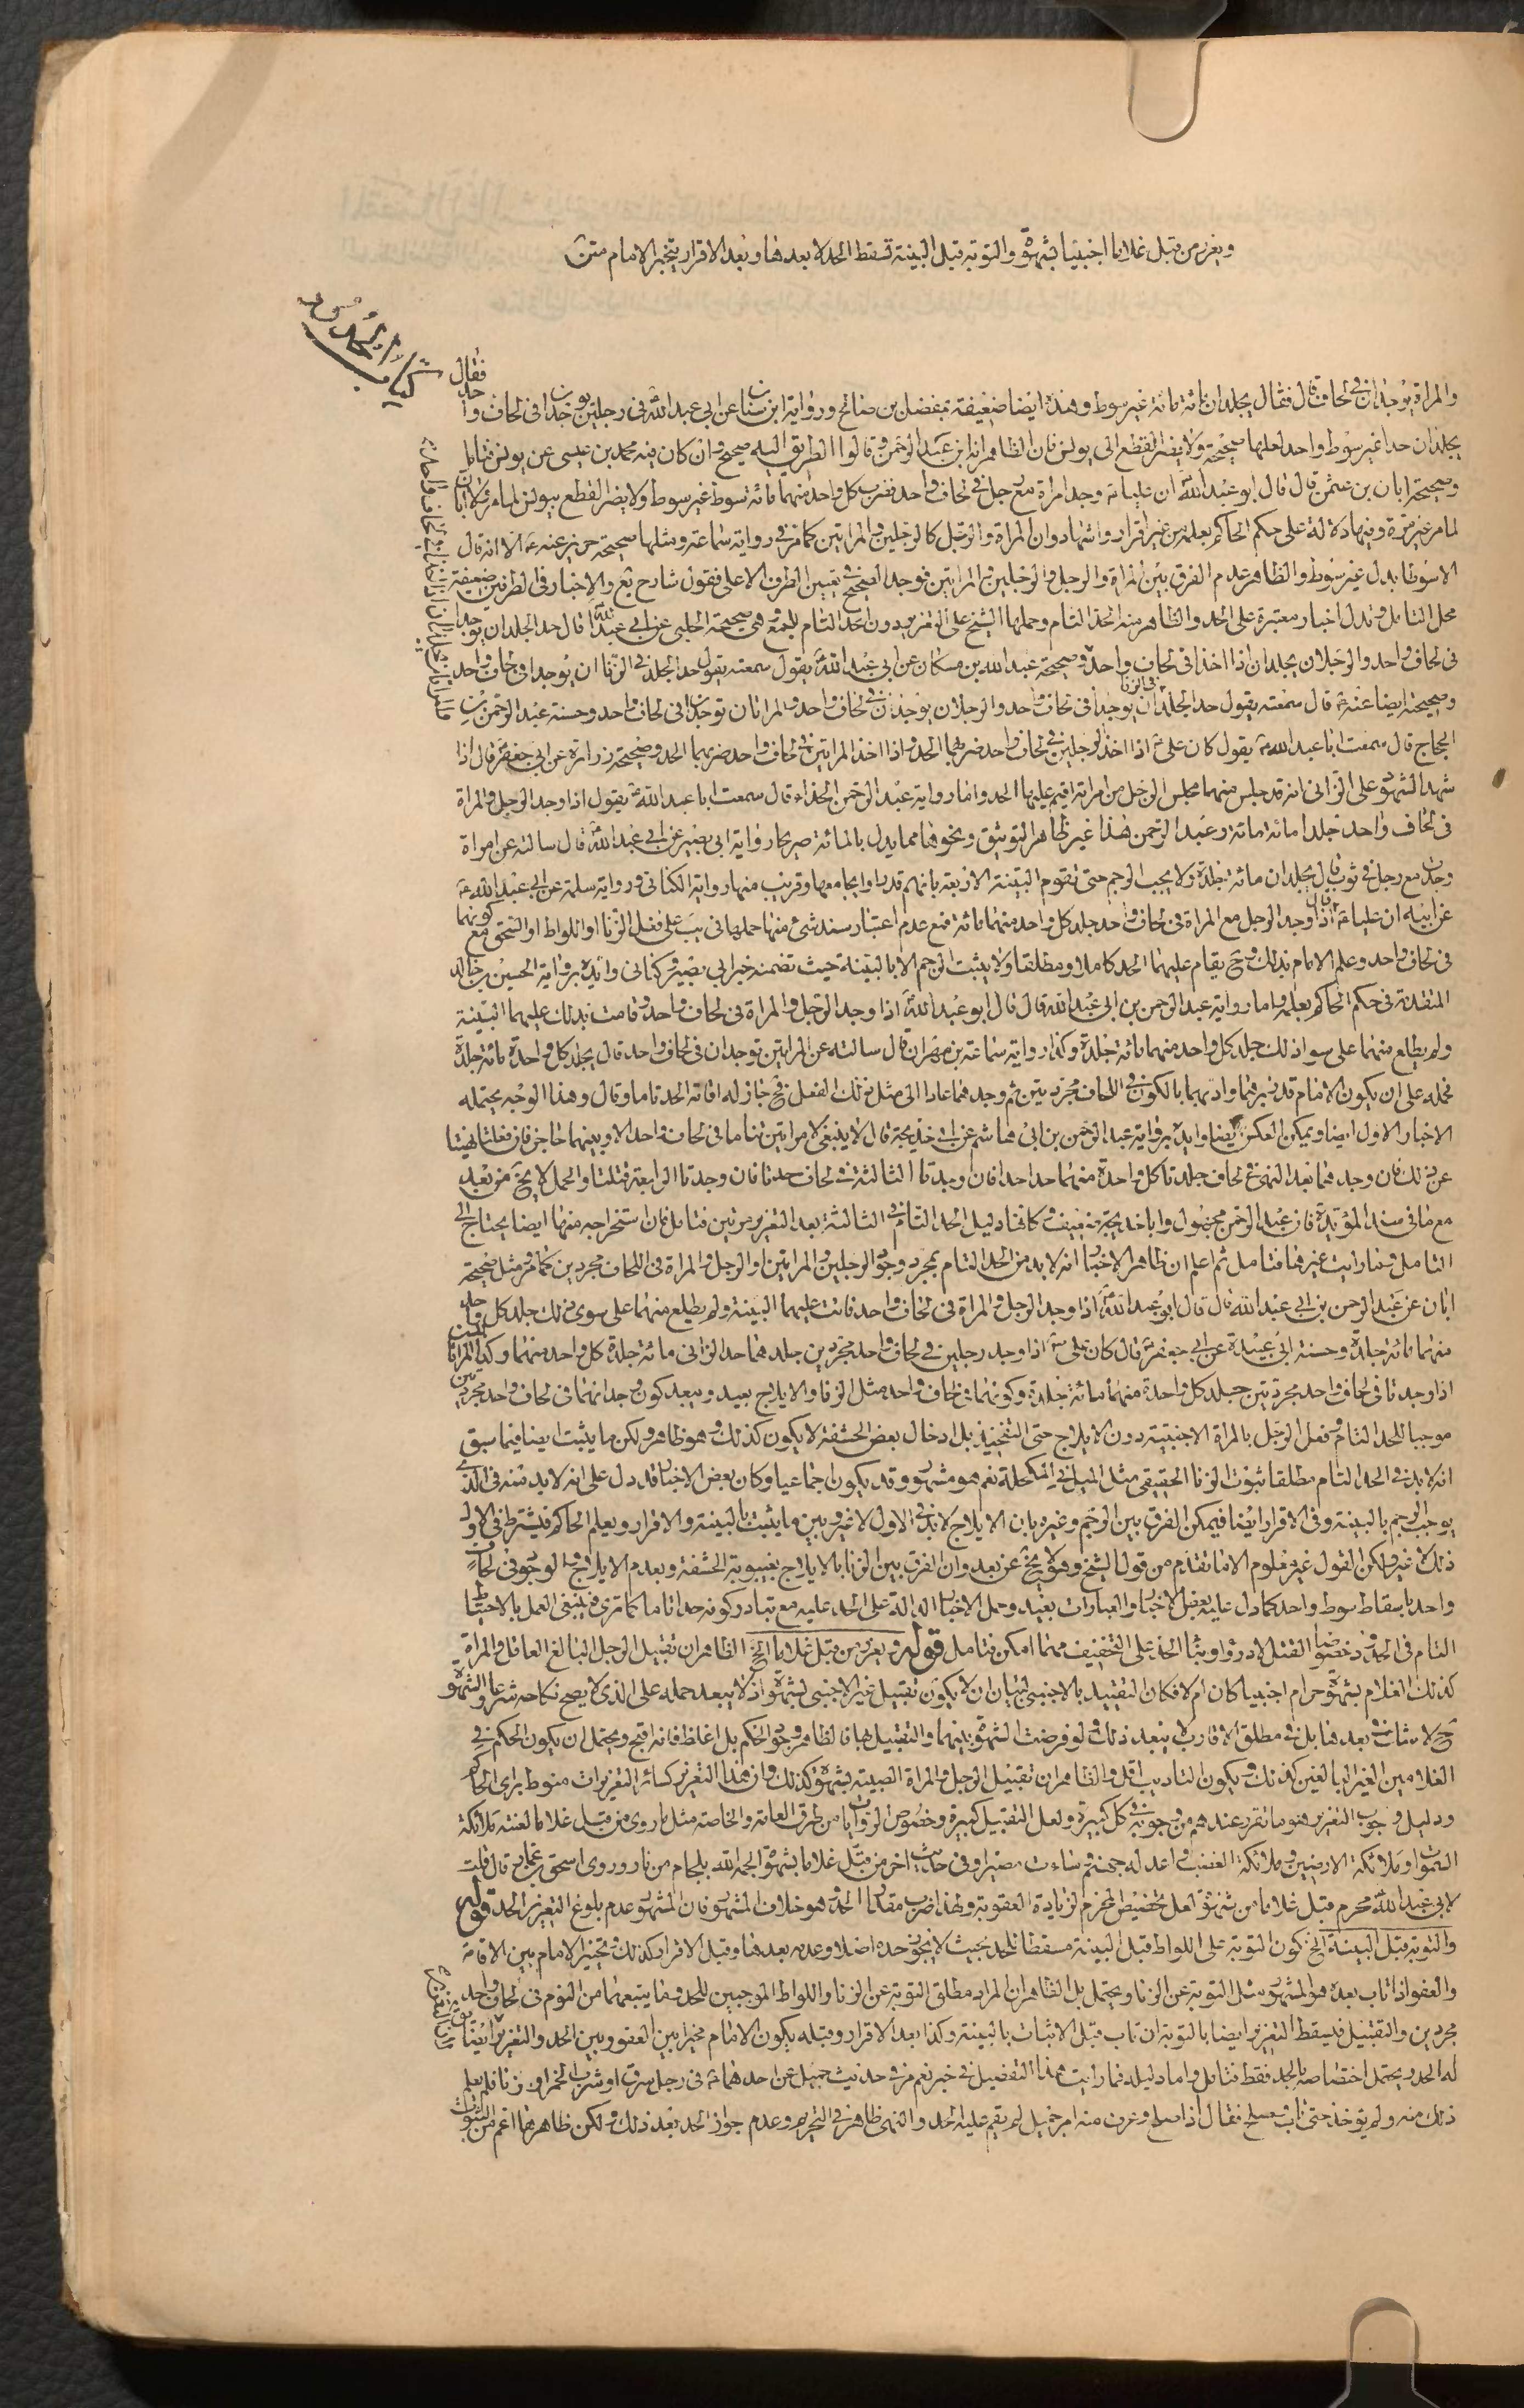 ويعزر من قبل غلاما اجنبيا بشهوة والتوبة قبل البينة تسقط الحد لا بعدها وبعد الاقرار يتخير الامام متن
كتاب الحدود
والمراة يوجدان في لحاف قال فقال يجلدان مائة مائة غير سوط وهذه ايضا ضعيفة بمفضل بن صالح ورواية ابن سنان عن ابي عبد الله في رجلين يوجدان في لحاف واحد فقال
يجلدان حدا غير سوط واحد لعلها صحيحة ولا يضر القطع الى يونس فان الظاهر انه ابن عبد الرحمن وقالوا الطريق اليه صحيح وان كان فيه محمد بن عيسى عن يونس فتامل
وصحيحة ابان بن عثمن قال قال ابو عبد الله ان عليا وجد امراة مع رجل في لحاف واحد فضرب كل واحد منهما مائة سوط غير سوط ولا يضر القطع بيونس لما مر ولا ابان
لما مر غير مرة وفيها دلالة على حكم الحاكم بعلمه من غير اقرار واشهاد وان المراة والرجل كالرجلين والمراتين كما مر في رواية سماعة ومثلها صحيحة حريز عنه الا انه قال
الا سوطا بدل غير سوط والظاهر عدم الفرق بين المراة والرجل والرجلين والمراتين فوجد الصحيح في تعيين الطرف الاعلى فقول شارح يع والاخبار في الطرفين ضعيفة
محل التامل وتدل اخبار معتبرة على الحد والظاهر منه الحد التام وحملها الشيخ على التعزير دون الحد التام للجمع وهي صحيحة الحلبي عن ابي عبد الله قال حد الجلد ان يوجدا
في لحاف واحد والرجلان يجلدان اذا اخذا في لحاف واحد وصحيحة عبد الله بن مسكان عن ابي عبد الله يقول سمعته يقول حد الجلد في الزنا ان يوجدا في لحاف واحد
وصحيحته ايضا عنه قال سمعته يقول حد الجلد في الزنا ان يوجدا في لحاف واحد والرجلان يوجدان في لحاف واحد والمراتان توجدان في لحاف واحد وحسنة عبد الرحمن بن
الحجاج قال سمعت ابا عبد الله يقول كان علي اذا اخذ الرجلين في لحاف واحد ضربهما الحد واذا اخذ المراتين في لحاف واحد ضربهما الحد وصحيحة زرارة عن ابي جعفر قال اذا
شهد الشهود على الزاني انه قد جلس منها مجلس الرجل من امراته اقيم عليها الحد واما رواية عبد الرحمن الحذاء قال سمعت ابا عبد الله يقول اذا وجد الرجل والمراة
في لحاف واحد جلدا مائة مائة وعبد الرحمن هذا غير ظاهر التوثيق ونحوها مما يدل بالمائة صريحا رواية ابي بصير عن ابي عبد الله قال سالته عن امراة
وجدت مع رجل في ثوب قال يجلدان مائة جلدة ولا يجب الرجم حتى تقوم البينة الاربعة بانهم قد راوا يجامعها وقريب منها رواية الكناني ورواية سلمة عن ابي عبد الله
عن ابيه ان عليا قال اذا وجد الرجل مع المراة في لحاف واحد جلد كل واحد منهما مائة فمع عدم اعتبار سند شئ منها حملها في يب على فعل الزنا او اللواط او السحق مع كونهما
في لحاف واحد وعلم الامام بذلك وح يقام عليهما الحد كاملا ومطلقا ولا يثبت الرجم الا بالبينة حيث تضمنه خبر ابي بصير وكناني وايده برواية الحسين بن خالد
المتقدمة في حكم الحاكم بعلمه واما رواية عبد الرحمن بن ابي عبد الله قال قال ابو عبد الله اذا وجد الرجل والمراة في لحاف واحد وقامت بذلك عليهما البينة
ولم يطلع منهما على سوا ذلك جلد كل واحد منهما مائة جلدة وكذا رواية سماعة بن مهران قال سالته عن المراتين توجدان في لحاف واحد قال يجلد كل واحدة مائة جلدة
فحمله على ان يكون الامام قد نبرهما وادبهما بالكون في اللحاف مجردتين ثم وجدهما عادا الى مثل ذلك الفعل فح جاز له اقامة الحد تاما وقال وهذا الوجه يحتمله
الاخبار الاول ايضا ويمكن العكس ايضا وايده برواية عبد الرحمن بن ابي هاشم عن ابي خديجة قال لا ينبغي لامراتين تناما في لحاف واحد الا وبينهما حاجز فان فعلتا نهيتا
عن ذلك فان وجدهما بعد النهي في لحاف جلدتا كل واحدة منهما حدا حدا فان وجدتا الثالثة في لحاف حدتا فان وجدتا الرابعة قتلتا والحمل لا يخ من بعد
مع ما في سند المؤيدة فان عبد الرحمن مجهول وابا خديجة ضعيف وكانها دليل الحد التام في الثالثة بعد التعزير مرتين فتامل فان استخراجه منها ايضا يحتاج الى
التامل وما رايت غيرها فتامل ثم اعلم ان ظاهر الاخبار انه لا بد من الحد التام بمجرد وجود الرجلين والمراتين او الرجل والمراة في اللحاف مجردين كما مر مثل صحيحة
ابان عن عبد الرحمن بن ابي عبد الله قال قال ابو عبد الله اذا وجد الرجل والمراة في لحاف واحد قامت عليهما البينة ولم يطلع منهما على سوى ذلك جلد كل واحد
منهما مائة جلدة وحسنة ابي عبيدة عن ابي جعفر قال كان علي اذا وجد رجلين في لحاف واحد مجردين جلدهما حد الزاني مائة جلدة كل واحد منهما وكذا المراتان
اذا وجدتا في لحاف واحد مجردتين جلد كل واحدة منهما مائة جلدة وكونهما في لحاف واحد مثل الزنا والايلاج بعيد ويبعد كون وجدانهما في لحاف واحد مجردين
موجبا للحد التام وفعل الرجل بالمراة الاجنبية دون الايلاج حتى التفخيذ بل ادخال بعض الحشفة لا يكون كذلك وهو ظاهر ولكن ما يثبت ايضا فيما سبق
انه لا بد في الحد التام مطلقا ثبوت الزنا الحقيقي مثل الميل في المكحلة نعم هو مشهور وقد يكون اجماعيا وكان بعض الاخبار قد دل على انه لا بد منه في الذي
يوجب الرجم بالبينة وفي الاقرار ايضا فيمكن الفرق بين الرجم وغيره بان الايلاج لا بد في الاول لا غير وبين ما يثبت بالبينة والاقرار وبعلم الحاكم فيشترط في الاول
ذلك لا غير ولكن القول غير معلوم الا ما تقدم من قول الشيخ وهو لا يخ عن بعد وان الفرق بين الزنا بالايلاج بغيبوبة الحشفة وبعدم الايلاج والوجود في لحاف
واحد باسقاط سوط واحد كما دل عليه بعض الاخبار والعبارات بعيد وحمل الاخبار الدالة على الحد عليه مع تبادر كونه حدا تاما كما ترى فينبغي العمل بالاحتياط
التام في الحدود خصوصا القتل لادرؤا وبنا الحد على التخفيف مهما امكن فتامل قوله ويعزر من قبل غلاما الخ الظاهر ان تقبيل الرجل البالغ العاقل والمراة
كذلك الغلام بشهوة حرام اجنبيا كان ام لا فكان التقييد بالاجنبي لبيان ان لا يكون تقبيل غير الاجنبي بشهوة اذ لا يبعد حمله على الذي لا يصح نكاحه شرعا والشهوة
ح لا شك في بعدها بل في مطلق الاقارب لا يبعد ذلك ولو فرضت الشهوة بينهما والتقبيل بها فالظاهر وجود الحكم بل اغلظ فانه اقبح ويحتمل ان يكون الحكم في
الغلامين الغير البالغين كذلك ويكون التاديب اقل والظاهر ان تقبيل الرجل والمراة الصبية بشهوة كذلك وان هذا التعزير كسائر التعزيرات منوط براى الحاكم
ودليل وجوب التعزير هو ما تقرر عندهم من وجوبه في كل كبيرة ولعل التقبيل كبيرة وخصوص الروايات من طرق العامة والخاصة مثل ما روي من قبل غلاما لعنته ملائكة
السموات وملائكة الارضين وملائكة الغضب واعد له جهنم وساءت مصيرا وفي حديث اخر من قبل غلاما بشهوة الجمه الله بلجام من نار وروى اسحق بن عمار قال قلت
لابي عبد الله محرم قبل غلاما من شهوة لعل تخصيص المحرم لزيادة العقوبة ولهذا ضرب مقدار الحد وهو خلاف المشهور فان المشهور عدم بلوغ التعزير الحد قوله
والتوبة قبل البينة الخ كون التوبة على اللواط قبل البينة مسقطا للحد بحيث لا يجوز حده اصلا وعدمه بعدها وقبل الاقرار كذلك وتخيير الامام بين الاقامة
والعفو اذا تاب بعده هو المشهور مثل التوبة عن الزنا ويحتمل بل الظاهر ان المراد مطلق التوبة عن الزنا واللواط الموجبين للحد وما يتبعهما من النوم في لحاف واحد
مجردين والتقبيل فيسقط التعزير ايضا بالتوبة ان تاب قبل الاثبات بالبينة وكذا بعد الاقرار وقبله يكون الامام مخيرا بين العفو وبين الحد والتعزير ايضا
له الحد ويحتمل اختصاصه بالحد فقط فتامل واما دليله فما رايت هذا التفصيل في خبر نعم مر في حديث جميل عن احدهما في رجل سرق او شرب الخمر او زنا فلم يعلم
ذلك منه ولم يوخذ حتى تاب وصلح فقال اذا صلح وعرف منه امر جميل لم يقم عليه الحد والنهي ظاهر في التحريم وعدم جواز الحد بعد ذلك ولكن ظاهرها اعم من الثبوت